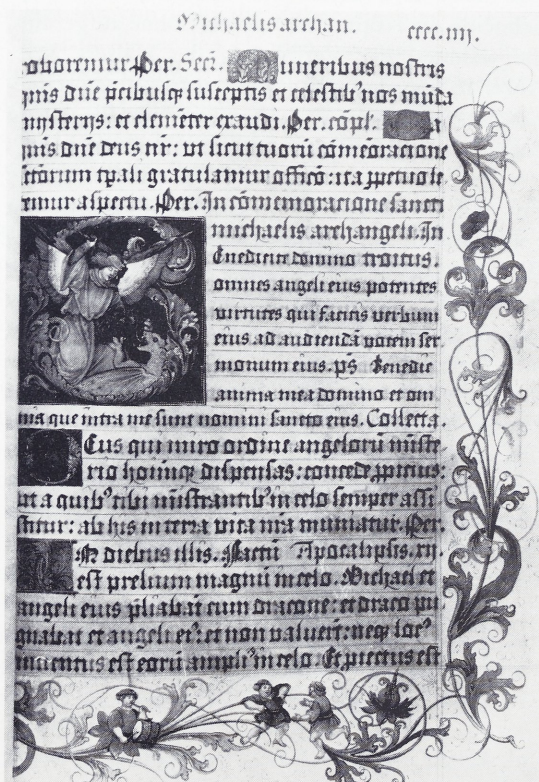 Michaelis archan. cccc.iiij.
oboremur Per. Secr. Muneribus nostris
quis dn̄e p̄cibusq; susceptis et celestib' nos mūda
mysterijs: et clemēter exaudi. Per. cōpl. Da
quis dn̄e deus nr̄: ut sicut tuorū cōmemoracione
sctorum tpali gratulamur officō: ita ppetuo le
temur aspectu. Per. In cōmemoracione sancti
michaelis archangeli. In
Enedicite domino troitus.
omnes angeli eius potentes
virtutes qui facitis verbum
eius ad audiendā vocem ser
monum eius. ps Benedic
anima mea domino et om
nia que intra me sunt nomini sancto eius. Collecta.
DEus qui miro ordine angelorū miste
ria hominūq; dispensas: concede ppicius:
ut a quib' tibi mistrantib' in celo semper assi
stitur: ab his in terra vita nra muniatur. Per.
IN diebus illis. Factū Apocalipsis. xij.
est prelium magnū in celo. Michael et
angeli eius p̄liabāt cum dracone: et draco pu
gnabat et angeli ei': et non valuerūt: neq; loc'
inuentus est eorū ampli' in celo. Et piectus est